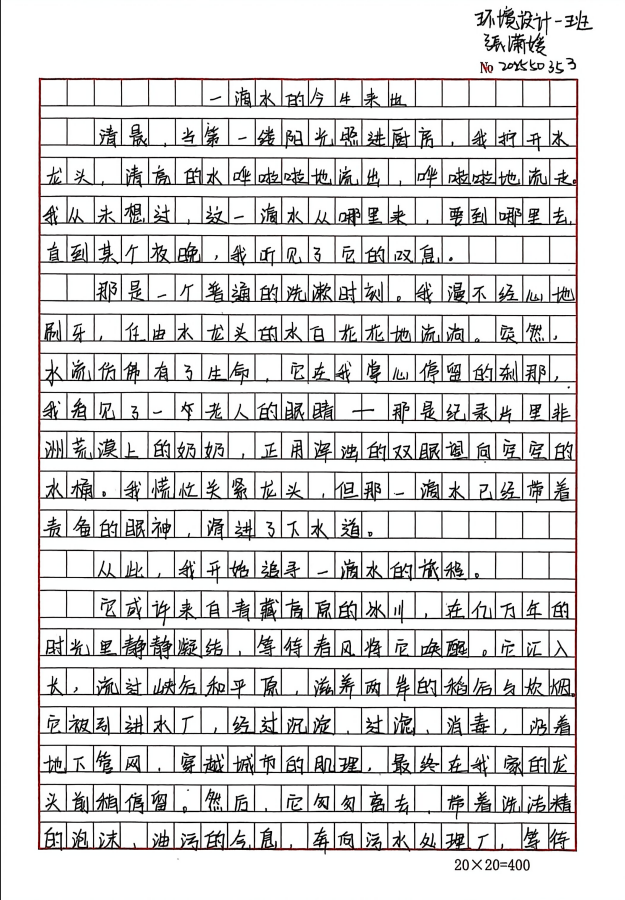 环境设计一班
张潇媛
No 202550353
一滴水的今生来世
清晨，当第一缕阳光照进厨房，我拧开水
龙头，清亮的水哗啦啦地流出，哗啦啦地流走。
我从未想过，这一滴水从哪里来，要到哪里去，
直到某个夜晚，我听见了它的叹息。
那是一个普通的洗漱时刻。我漫不经心地
刷牙，任由水龙头的水白花花地流淌。突然，
水流仿佛有了生命，它在我掌心停留的刹那，
我看见了一个老人的眼睛——那是纪录片里非
洲荒漠上的奶奶，正用浑浊的双眼望向空空的
水桶。我慌忙关紧龙头，但那一滴水已经带着
责备的眼神，滑进了下水道。
从此，我开始追寻一滴水的旅程。
它或许来自青藏高原的冰川，在亿万年的
时光里静静凝结，等待春风将它唤醒。它汇入
长，流过峡谷和平原，滋养两岸的稻谷与炊烟。
它被引进水厂，经过沉淀、过滤、消毒，沿着
地下管网，穿越城市的肌理，最终在我家的龙
头前稍停留。然后，它匆匆离去，带着洗洁精
的泡沫、油污的气息，奔向污水处理厂，等待
20×20=400